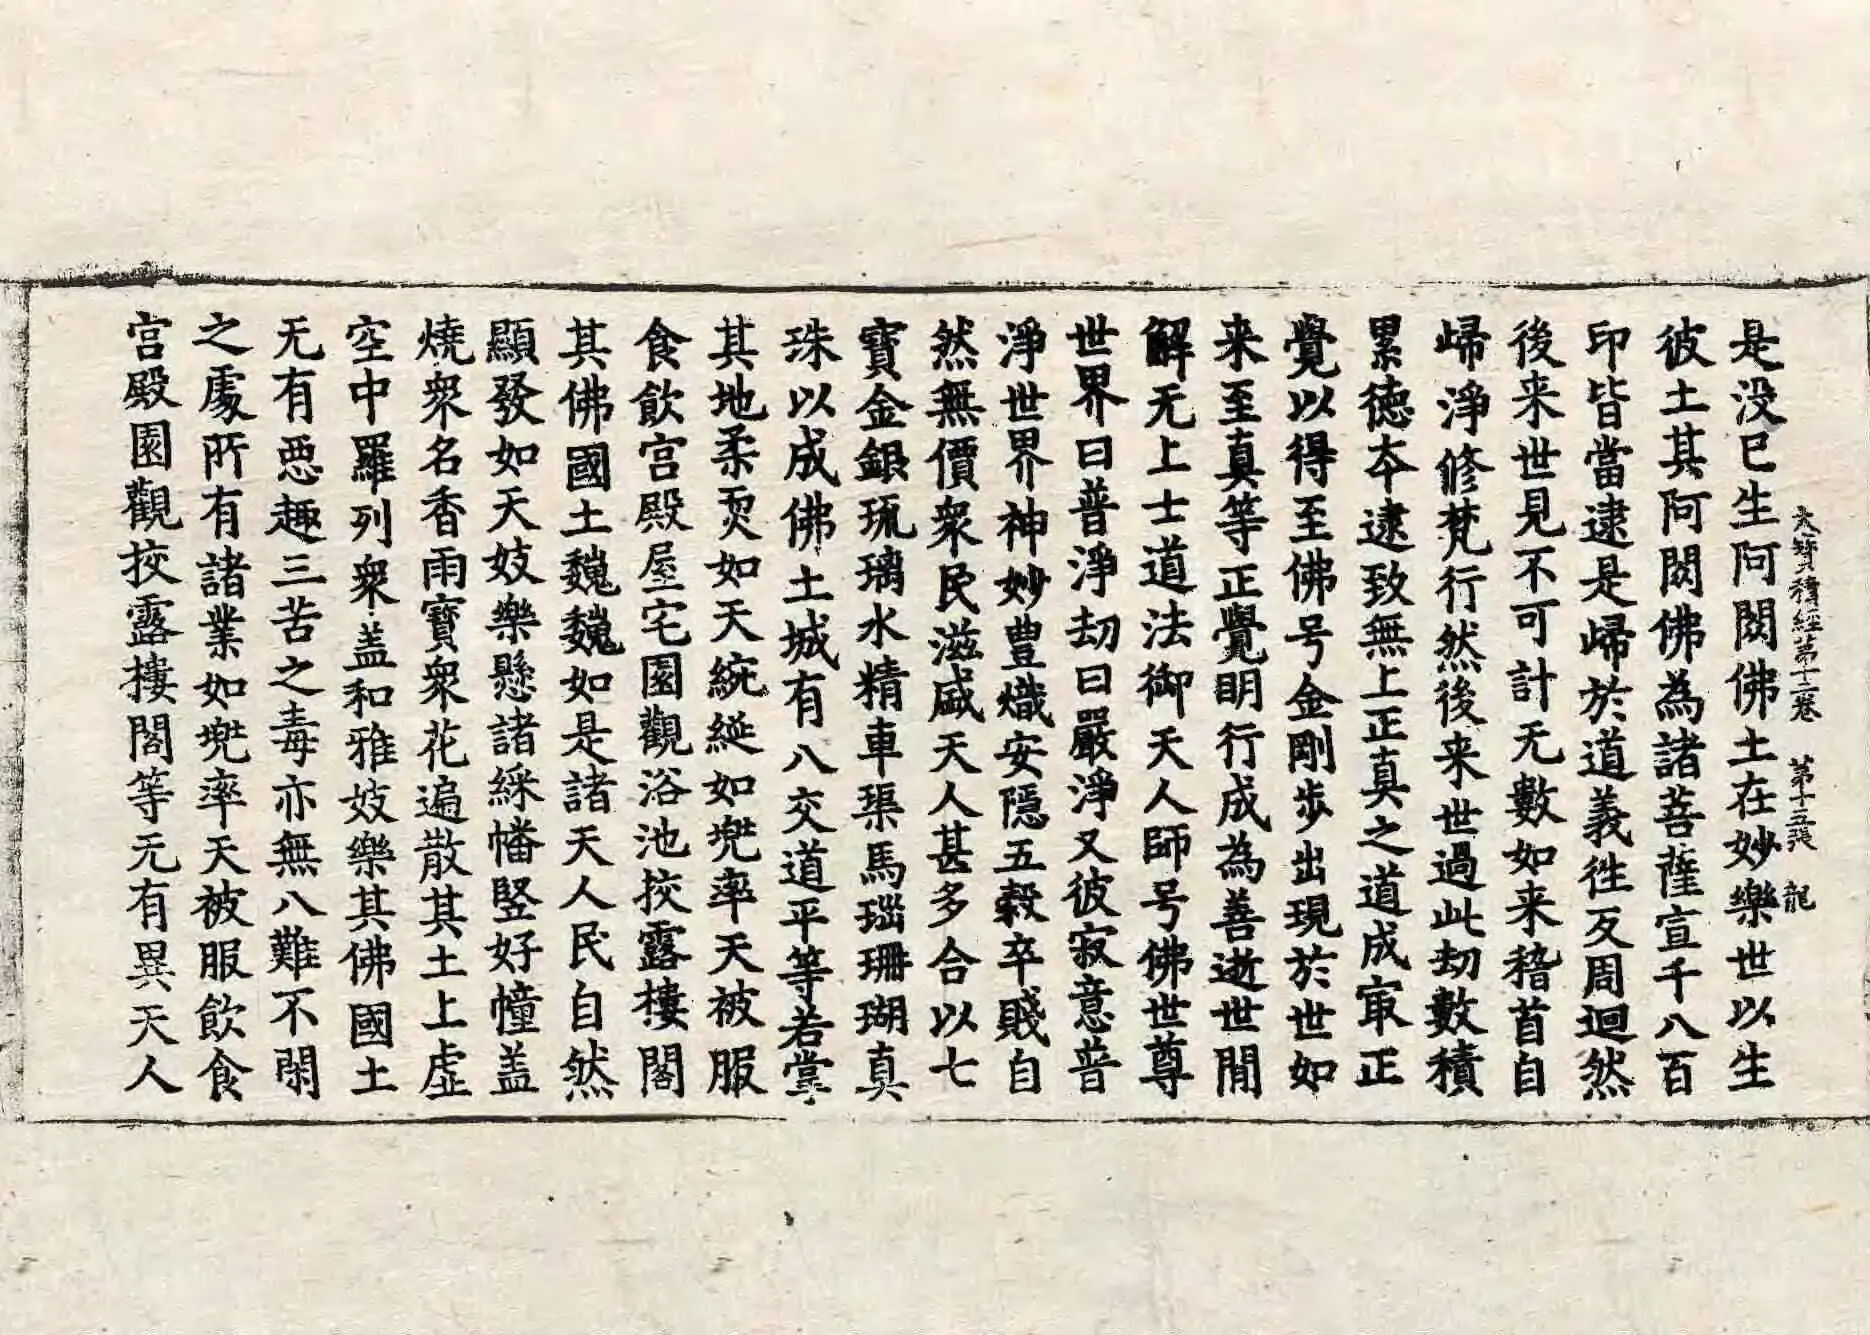 大寶積經第十二卷　第十五張　龍
是没已生阿閦佛土在妙樂世以生
彼土其阿閦佛為諸菩薩宣千八百
印皆當逮是歸於道義徃反周迴然
後来世見不可計无數如来稽首自
歸淨修梵行然後来世過此劫數積
累德夲逮致無上正真之道成冣正
覺以得至佛号金剛步出現於世如
来至真等正覺明行成為善逝世閒
解无上士道法御天人師号佛世尊
世界曰普淨劫曰嚴淨又彼寂意普
淨世界神妙豊熾安隱五穀卒賤自
然無價衆民滋盛天人甚多合以七
寶金銀琉璃水精車璖馬瑙珊瑚真
珠以成佛土城有八交道平等若掌
其地柔耎如天綩綖如兜率天被服
食飲宫殿屋宅園觀浴池挍露樓閣
其佛國土魏魏如是諸天人民自然
顯發如天妓樂懸諸綵幡竪好幢盖
燒衆名香雨寶衆花遍散其土上虛
空中羅列衆盖和雅妓樂其佛國土
无有惡趣三苦之毒亦無八難不閑
之處所有諸業如兜率天被服飲食
宫殿園觀挍露樓閣等无有異天人